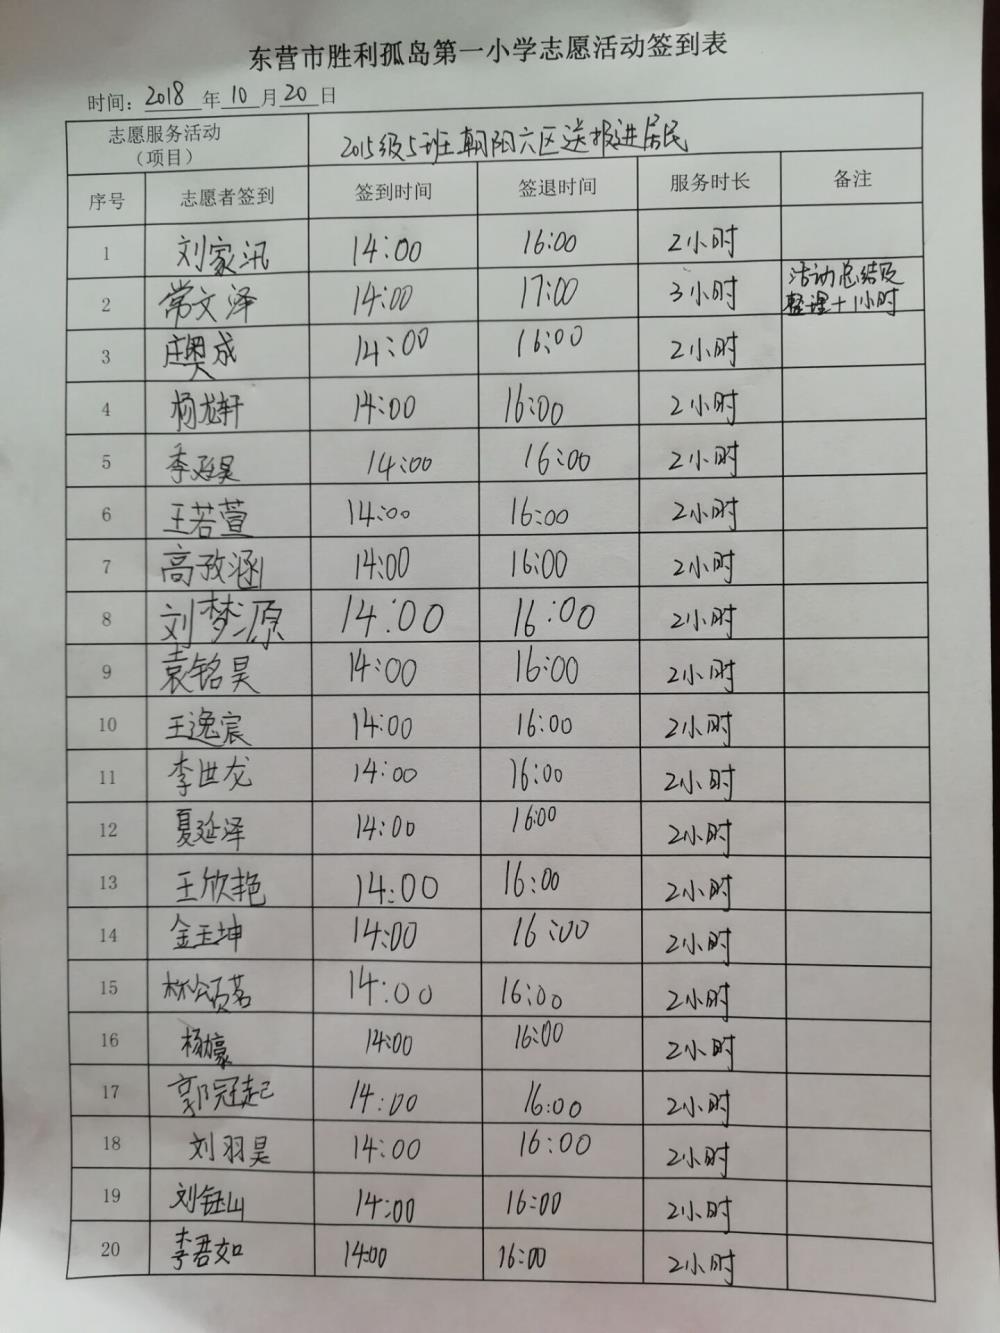 东营市胜利孤岛第一小学志愿活动签到表
时间：2018 年 10 月 20 日
志愿服务活动
（项目）
2015级5班朝阳六区送报进居民
序号 志愿者签到 签到时间 签退时间 服务时长 备注
1 刘家汛 14:00 16:00 2小时
2 常文泽 14:00 17:00 3小时 活动总结及
整理+1小时
3 庄奥成 14:00 16:00 2小时
4 杨龙轩 14:00 16:00 2小时
5 李延昊 14:00 16:00 2小时
6 王若萱 14:00 16:00 2小时
7 高孜涵 14:00 16:00 2小时
8 刘梦源 14:00 16:00 2小时
9 袁铭昊 14:00 16:00 2小时
10 王逸宸 14:00 16:00 2小时
11 李世龙 14:00 16:00 2小时
12 夏延泽 14:00 16:00 2小时
13 王欣艳 14:00 16:00 2小时
14 金玉坤 14:00 16:00 2小时
15 林颂茗 14:00 16:00 2小时
16 14:00 16:00 2小时
17 郭冠起 14:00 16:00 2小时
18 刘羽昊 14:00 16:00 2小时
19 刘钰山 14:00 16:00 2小时
20 李君如 14:00 16:00 2小时